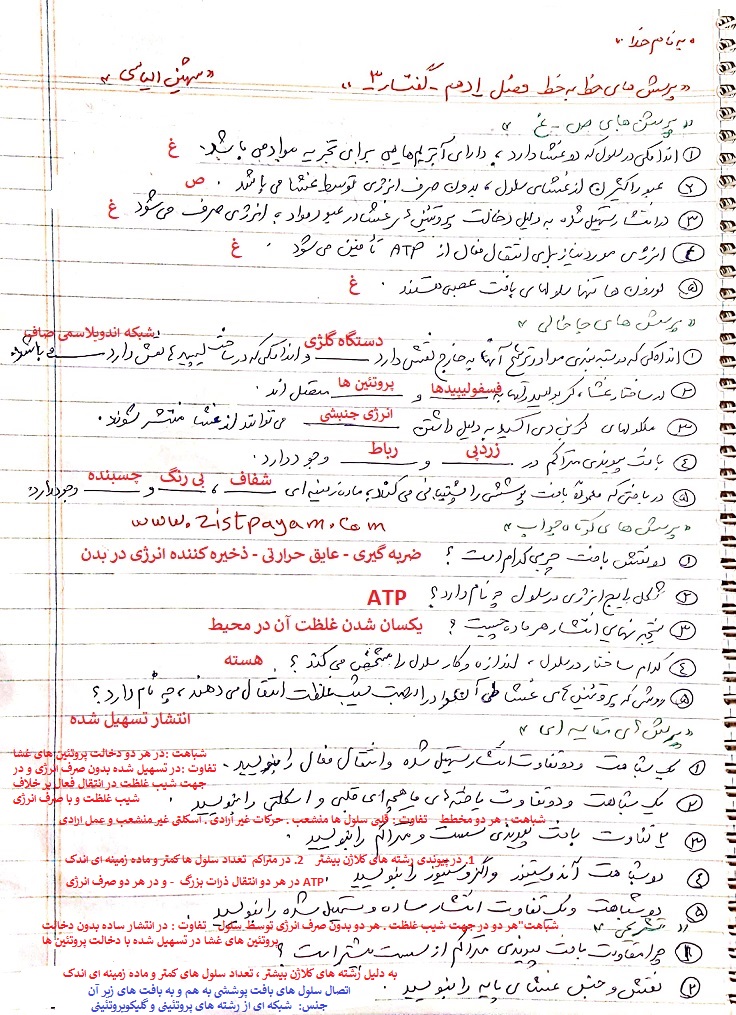 « به نام خدا »
« پرسش های خط به خط فصل یازدهم - گفتار ۳ » « مهتاب الیاسی »
« پرسش های ص - غ »
۱ اندامکی در سلول که دو غشا دارد ، دارای آنزیم هایی برای تجزیه مواد می باشد. غ
۲ عبور اکسیژن از غشای سلول ، بدون صرف انرژی توسط غشا می باشد . ص
۳ در انتشار تسهیل شده به دلیل دخالت پروتئین های غشا در عبور مواد ، انرژی صرف می شود غ
۴ انرژی مورد نیاز برای انتقال فعال از ATP تأمین می شود . غ
۵ نورون ها تنها سلولهای بافت عصبی هستند . غ
« پرسش های جاخالی »
۱ اندامکی که در بسته بندی مواد و ترشح آنها به خارج نقش دارد دستگاه گلژی و اندامکی که در ساخت لیپیدها نقش دارد شبکه اندوپلاسمی صاف می باشد
۲ در ساختار غشا ، کربوهیدراتها به فسفولیپیدها و پروتئین ها متصل اند .
۳ مولکولهای کربن دی اکسید به دلیل داشتن انرژی جنبشی می توانند از غشا منتشر شوند .
۴ بافت پیوندی متراکم در زردپی و رباط وجود دارد .
۵ در بافتی که معمولاً بافت پوششی را پشتیبانی می کند ، ماده زمینه ای شفاف ، بی رنگ و چسبنده وجود دارد .
« پرسش های کوتاه جواب » www.zistpayam.com
۱ دو نقش بافت چربی کدام است ؟ ضربه گیری - عایق حرارتی - ذخیره کننده انرژی در بدن
۲ شکل رایج انرژی در سلول چه نام دارد ؟ ATP
۳ نتیجه نهایی انتشار هر ماده چیست ؟ یکسان شدن غلظت آن در محیط
۴ کدام ساختار در سلول ، اندازه و کار سلول را مشخص می کند ؟ هسته
۵ روشی که پروتئین های غشا طی آن مواد را در جهت شیب غلظت انتقال می دهند ، چه نام دارد ؟
انتشار تسهیل شده
« پرسش های مقایسه ای »
۱ یک شباهت و دو تفاوت انتشار تسهیل شده و انتقال فعال را بنویسید .
شباهت :در هر دو دخالت پروتئین های غشا
تفاوت :در تسهیل شده بدون صرف انرژی و در
جهت شیب غلظت در انتقال فعال بر خلاف
شیب غلظت و با صرف انرژی
۲ یک شباهت و دو تفاوت یاخته های ماهیچه ای قلبی و اسکلتی را بنویسید .
شباهت : هر دو مخطط تفاوت : قلبی سلول ها منشعب . حرکات غیر ارادی . اسکلتی غیر منشعب و عمل ارادی
۳ ۲ تفاوت بافت پیوندی سست و متراکم را بنویسید .
1. در پیوندی رشته های کلاژن بیشتر 2. در متراکم تعداد سلول ها کمتر و ماده زمینه ای اندک
۴ دو شباهت آندوسیتوز و اگزوسیتوز را بنویسید .
در هر دو انتقال ذرات بزرگ - و در هر دو صرف انرژی ATP
۵ دو شباهت و یک تفاوت انتشار ساده و تسهیل شده را بنویسید
شباهت"هر دو در جهت شیب غلظت . هر دو بدون صرف انرژی توسط سلول تفاوت : در انتشار ساده بدون دخالت
پروتئین های غشا در تسهیل شده با دخالت پروتئین ها
« تشریحی »
۱ چرا مقاومت بافت پیوندی متراکم از سست بیشتر است ؟
به دلیل رشته های کلاژن بیشتر ، تعداد سلول های کمتر و ماده زمینه ای اندک
۲ نقش و جنس غشای پایه را بنویسید .
اتصال سلول های بافت پوششی به هم و به بافت های زیر آن
جنس: شبکه ای از رشته های پروتئینی و گلیکوپروتئینی